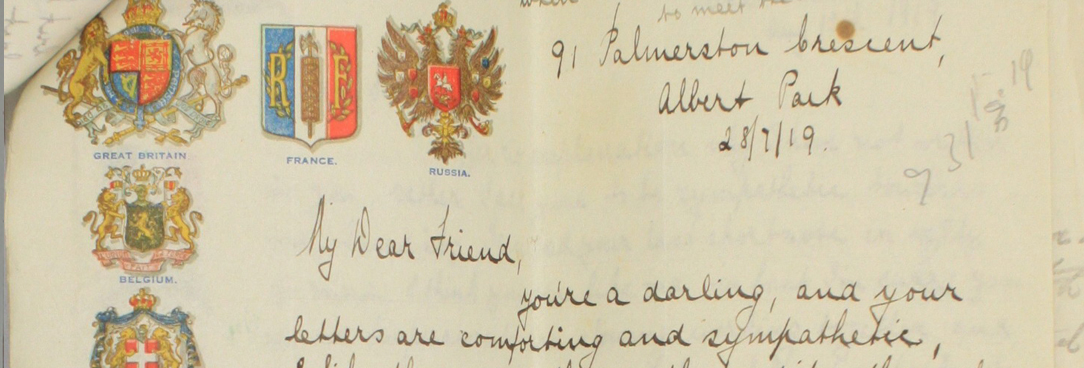 when
to meet the
91 Palmerston Crescent,
Albert Park
28/7/19.
GREAT BRITAIN
FRANCE.
RUSSIA.
R F
BELGIUM.
My Dear Friend,
you're a darling, and your
letters are comforting and sympathetic,